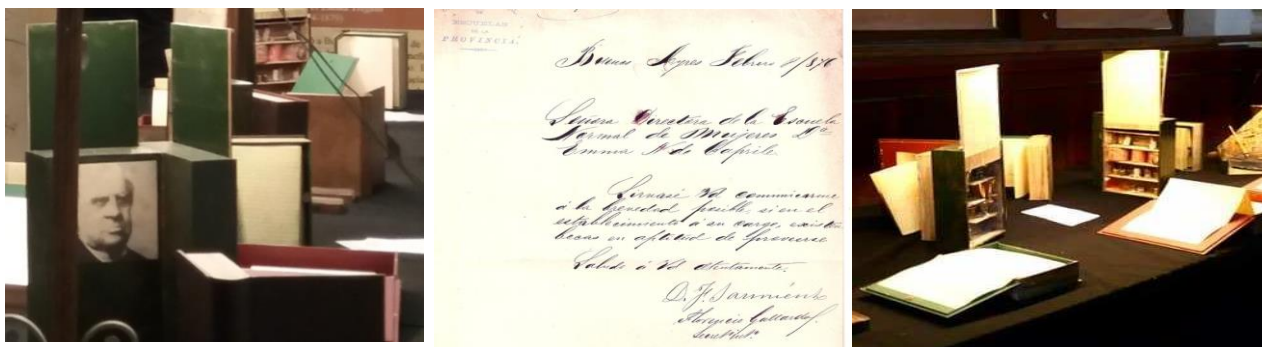 ESCUELAS
DE LA
PROVINCIA.
Buenos Ayres Febrero 8/876
Señora Directora de la Escuela
Normal de Mujeres Dña
Emma N. de Caprile
Sirvase Vd communicarme
á la brevedad posible, si en el
establecimiento á su cargo, existen
becas en aptitud de proveerse
Saludo á Vd atentamente.
D. F. Sarmiento
Florencio Gallardo